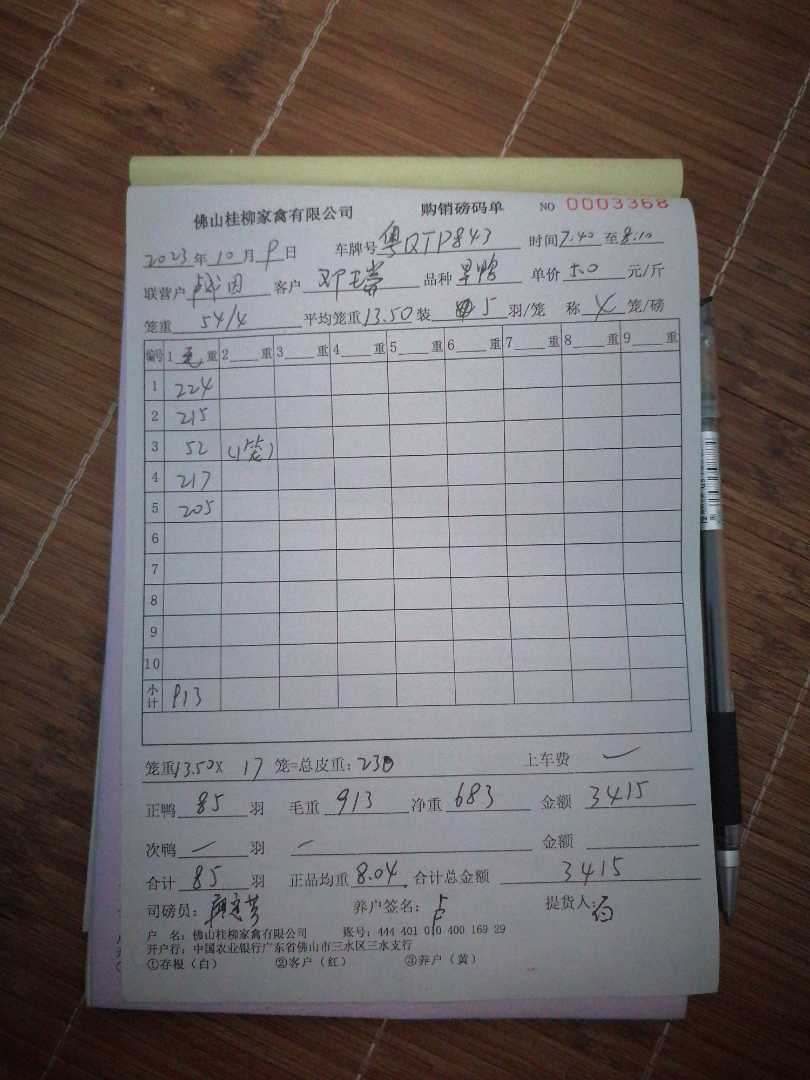 佛山桂柳家禽有限公司 购销磅码单 NO 0003368
2023年10月9日 车牌号 粤QTP843 时间7:40至8:10
联营户 客户 邓 品种 旱鸭 单价 5.0 元/斤
笼重 54/4 平均笼重13.50 装 5 羽/笼 称 4 笼/磅
编号 1 毛 重 2 重 3 重 4 重 5 重 6 重 7 重 8 重 9 重
1 224
2 215
3 52 (1笼)
4 217
5 205
6
7
8
9
10
小计 913
笼重13.50× 17 笼=总皮重:230 上车费 一
正鸭 85 羽 毛重 913 净重 683 金额 3415
次鸭 一 羽 一 金额
合计 85 羽 正品均重 8.04 合计总金额 3415
司磅员: 养户签名: 卢 提货人:
户 名: 佛山桂柳家禽有限公司 账号: 444 401 010 400 169 29
开户行: 中国农业银行广东省佛山市三水区三水支行
①存根(白) ②客户(红) ③养户(黄)